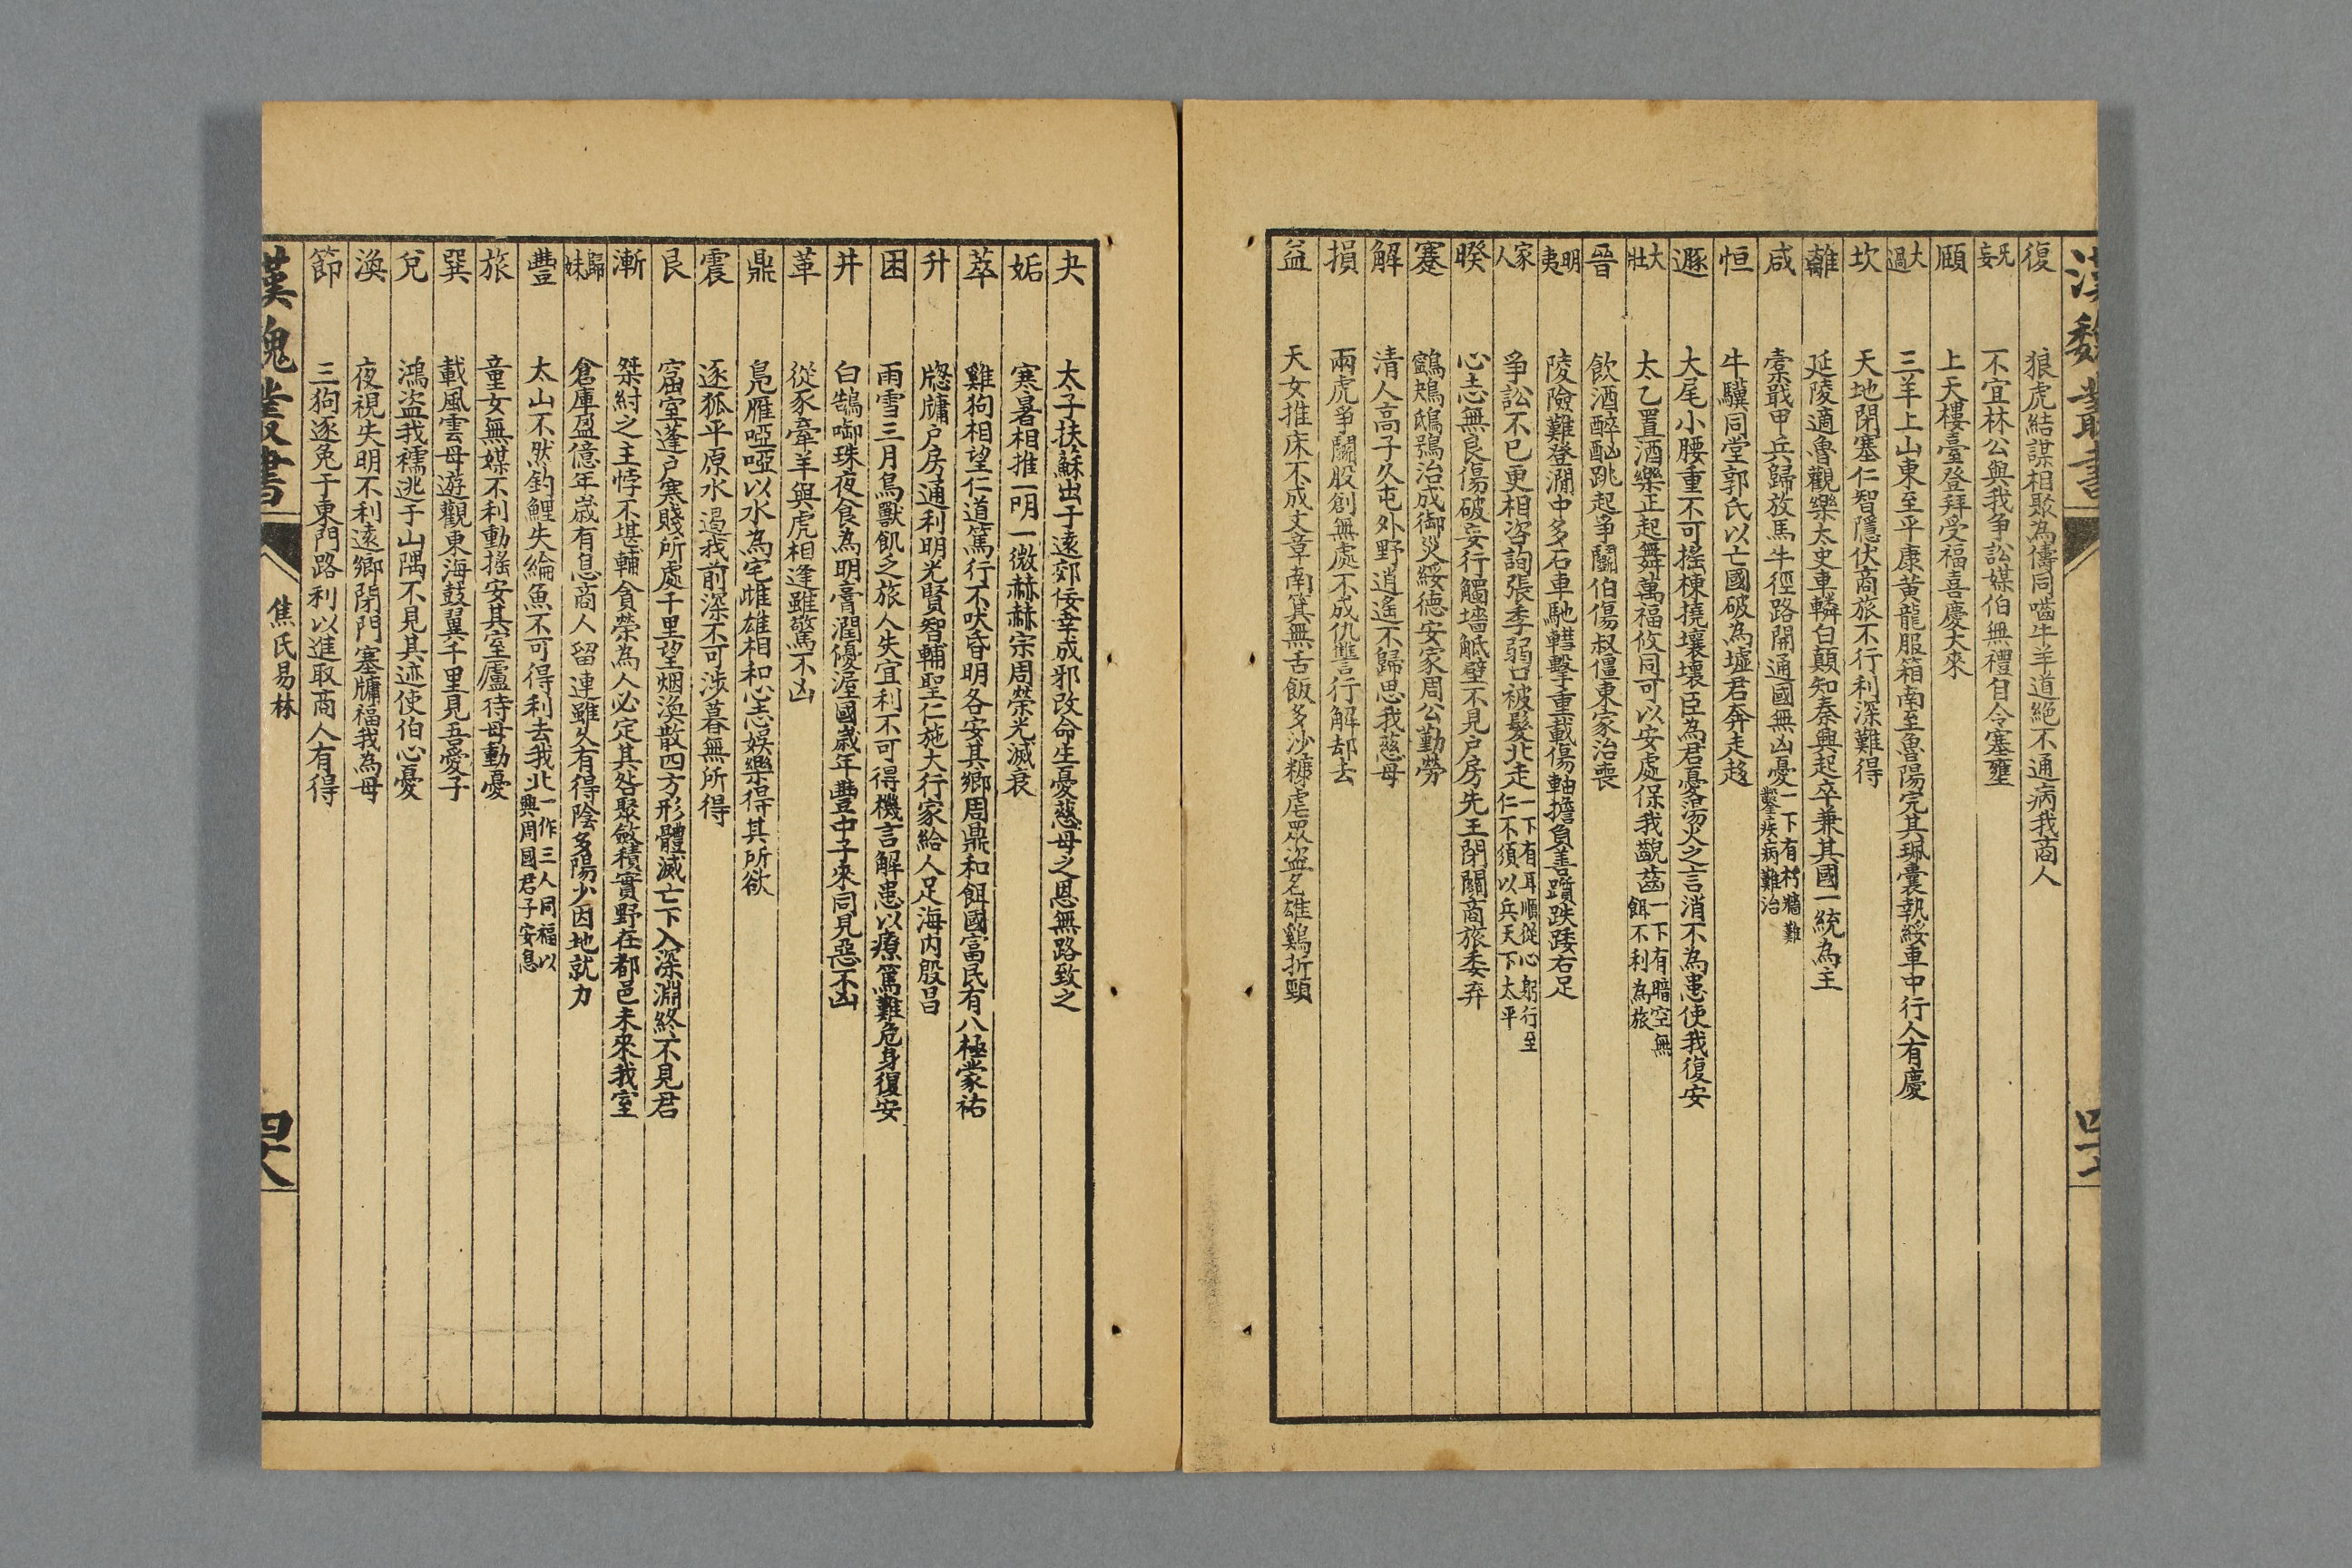 漢魏叢書
復 狼虎結謀相聚為儔同嚙牛羊道絕不通病我商人
无妄 不宜林公與我争訟媒伯無禮自令塞壅
頤 上天樓臺登拜受福喜慶大來
大過 三羊上山東至平康黃龍服箱南至魯陽完其珮囊執綏車中行人有慶
坎 天地閉塞仁智隱伏商旅不行利深難得
離 延陵適魯觀樂太史車轔白顛知秦興起卒兼其國一統為主
咸 櫜戢甲兵歸放馬牛徑路開通國無凶憂一下有朽墻難鑿疾病難治
恒 牛驥同堂郭氏以亡國破為墟君奔走趍
遯 大尾小腰重不可搖棟撓壤壞臣為君憂㓗湯火之言消不為患使我復安
大壯 太乙置酒樂正起舞萬福攸同可以安處保我齯齒一下有暗空無餌不利為旅
晉 飲酒醉酗跳起爭鬬伯傷叔僵東家治喪
明夷 陵險難登澗中多石車馳轊擊重載傷軸擔負善躓跌踒右足
家人 爭訟不已更相咨詢張季弱口被髮北走一下有耳順從心躬行至仁不須以兵天下太平
暌 心志無良傷破妄行觸墻觝壁不見戶房先王閉關商旅委弃
蹇 鸋鴂鴟鴞治成御災綏德安家周公勤勞
解 清人高子久屯外野逍遙不歸思我慈母
損 兩虎爭鬬股創無處不成仇讐行解却去
益 天女推床不成文章南箕無舌飯多沙糠虐眾盜名雄鷄折頸
夬 太子扶蘇出于遠郊佞幸成邪改命生憂慈母之恩無路致之
姤 寒暑相推一明一微赫赫宗周榮光滅衰
萃 雞狗相望仁道篤行不吠昏明各安其鄉周鼎和餌國富民有八極蒙祐
升 牕牖戶房通利明光賢智輔聖仁施大行家給人足海内殷昌
困 雨雪三月鳥獸飢乏旅人失宜利不可得機言解患以療篤難危身復安
井 白鵠啣珠夜食為明膏潤優渥國歲年豐中子來同見惡不凶
革 從豕牽羊與虎相逢雖驚不凶
鼎 鳧雁啞啞以水為宅雌雄相和心志娛樂得其所欲
震 逐狐平原水遏我前深不可涉暮無所得
艮 窟室蓬戶寒賤所處千里望烟渙散四方形體滅亡下入深淵終不見君
漸 桀紂之主悖不堪輔貪榮為人必定其咎聚斂積實野在都邑未來我室
歸妹 倉庫盈億年歲有息商人留連雖久有得陰多陽少因地就力
豐 太山不然釣鯉失綸魚不可得利去我北一作三人同福以興周國君子安息
旅 童女無媒不利動搖安其室廬待母動憂
巽 載風雲母遊觀東海鼓翼千里見吾愛子
兌 鴻盜我襦逃于山隅不見其迹使伯心憂
渙 夜視失明不利遠鄉閉門塞牖福我為母
節 三狗逐兔于東門路利以進取商人有得
漢魏叢書 焦氏易林 四十八